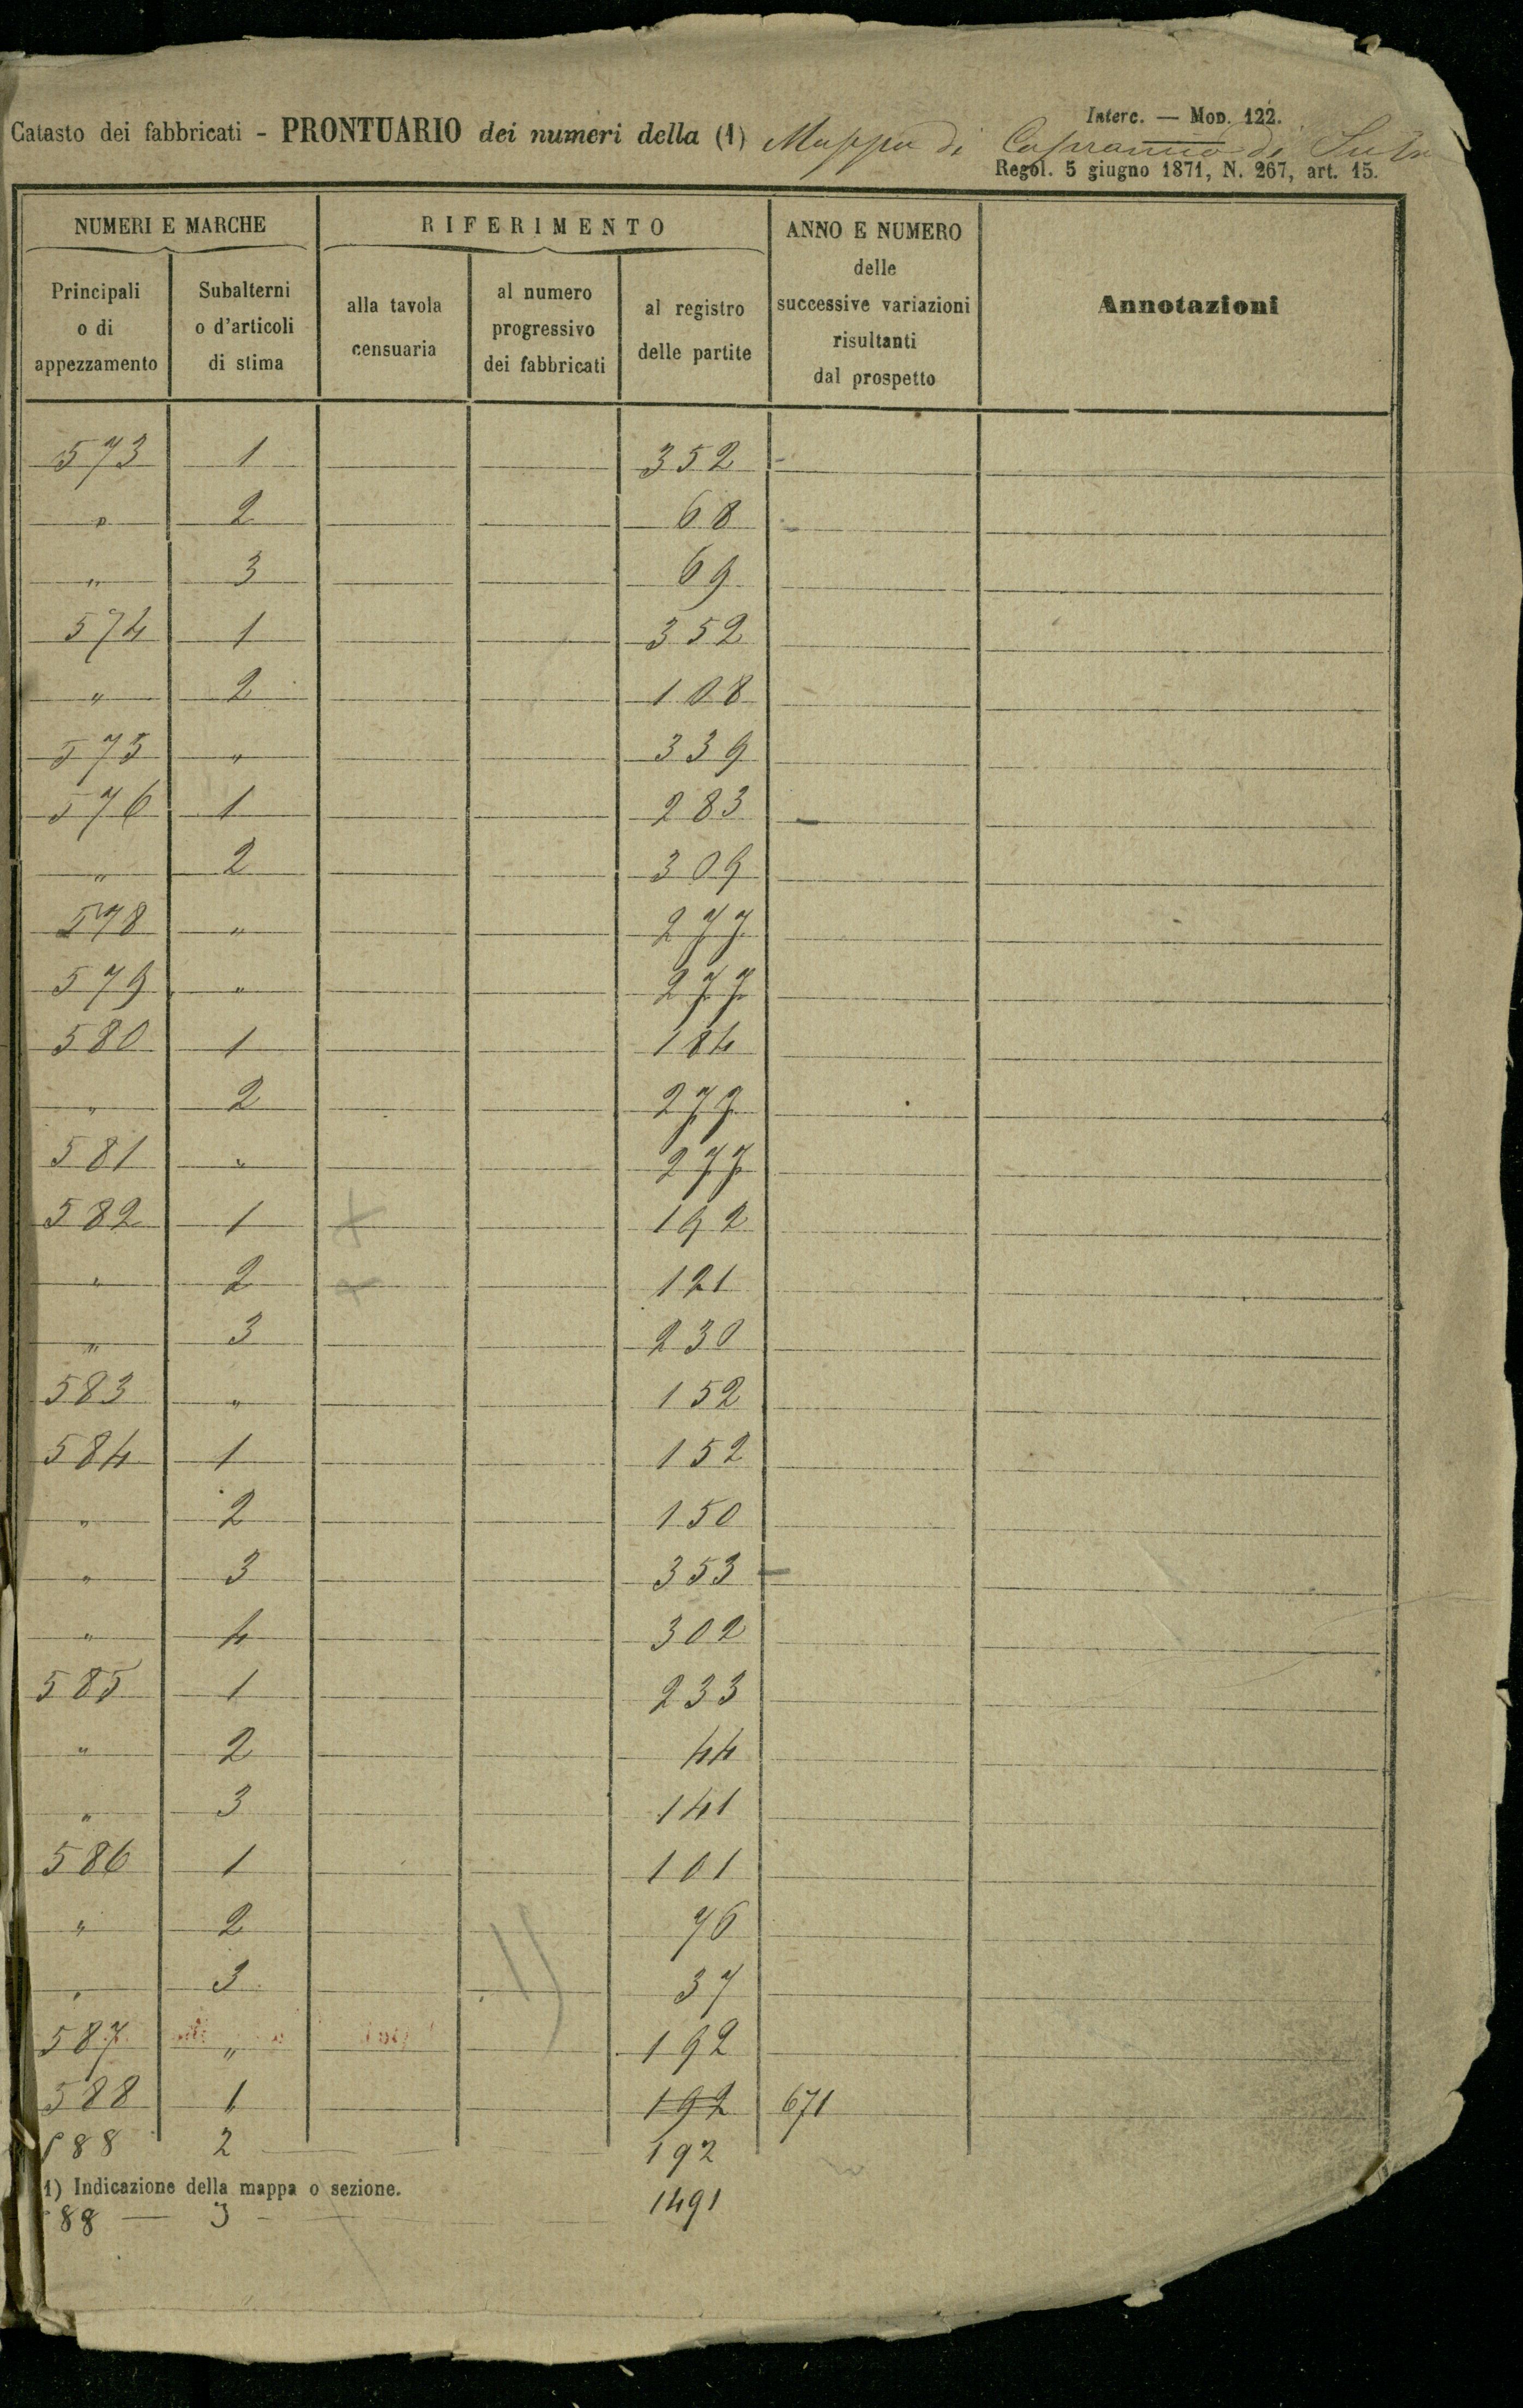 Interc. — Mod. 122.
Catasto dei fabbricati - PRONTUARIO dei numeri della (1) Mappa di Capranica di Sutri
Regol. 5 giugno 1871, N. 267, art. 15.
NUMERI E MARCHE RIFERIMENTO ANNO E NUMERO delle successive variazioni risultanti dal prospetto Annotazioni
Principali o di appezzamento Subalterni o d'articoli di stima alla tavola censuaria al numero progressivo dei fabbricati al registro delle partite
573 1 352 -
" 2 68 -
" 3 69
574 1 352
" 2 108
575 " 339
576 1 283 -
" 2 309
578 " 277
579 " 277
580 1 184
" 2 277
581 " 277
582 1 × 192
" 2 × 121
" 3 230
583 " 152
584 1 152
" 2 150
" 3 353 -
" 4 302
585 1 233
" 2 44
" 3 141
586 1 101
" 2 76
" 3 37
587 " 192
588 1 192 671
588 2 — 192
1) Indicazione della mappa o sezione.
88 — 3 - 1491